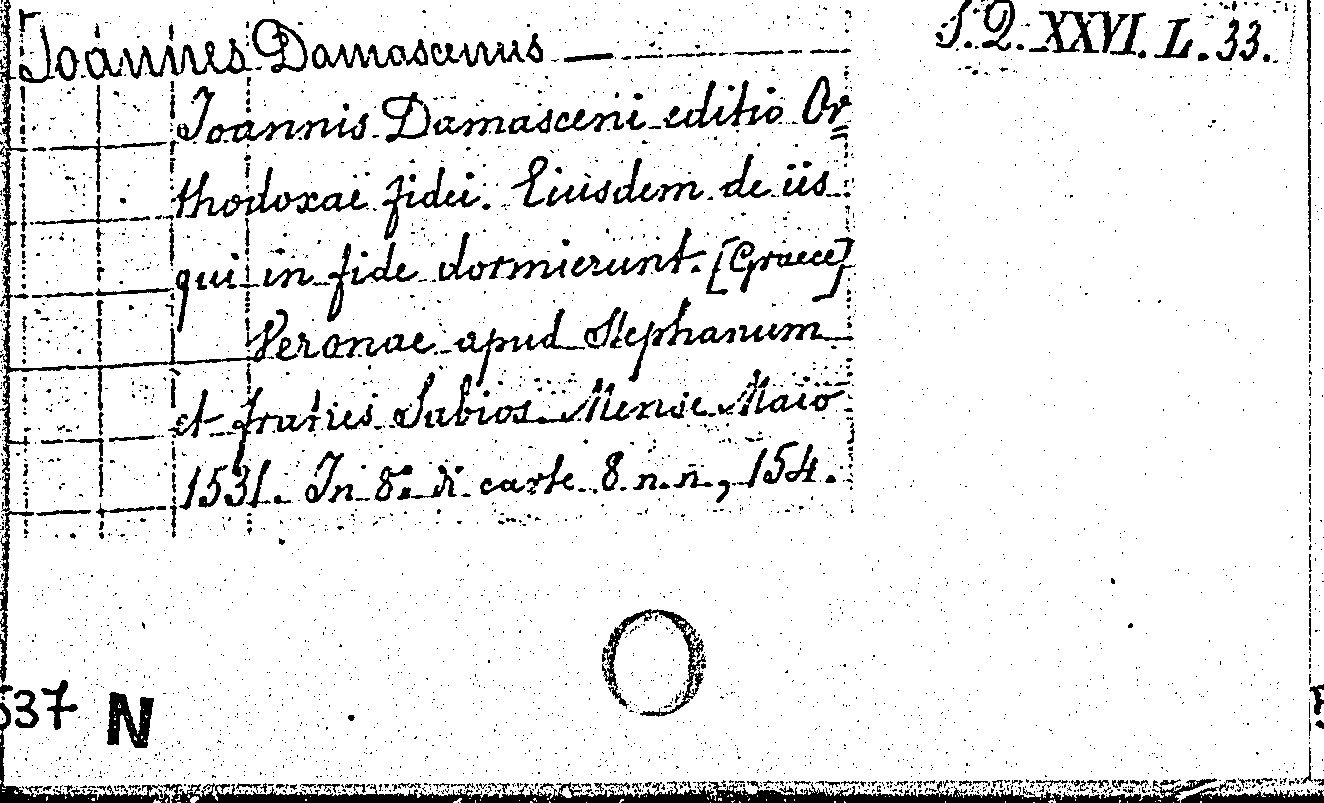 Joannes Damascenus — S.Q. XXVI. L. 33.
Joannis Damasceni editio Or=
thodoxae fidei. Eiusdem de iis
qui in fide dormierunt. [Graece]
Veronae apud Stephanum
et fratres Sabios. Mense Maio
1531. In 8.° di carte 8 n.n., 154.
537 N